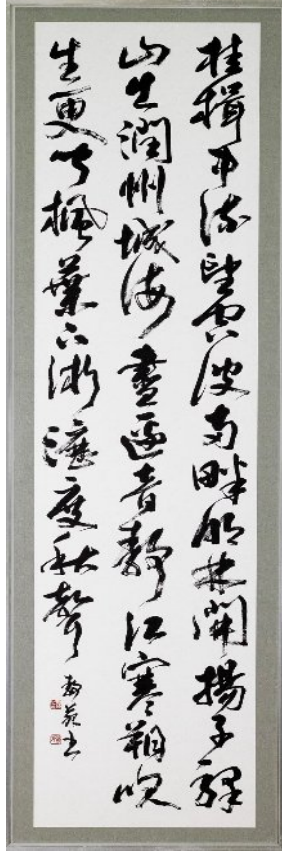 桂楫中流望空波両畔明林開揚子驛
山出潤州城海盡邊音靜江寒朔吹
生更聞楓葉下淅瀝度秋聲 書